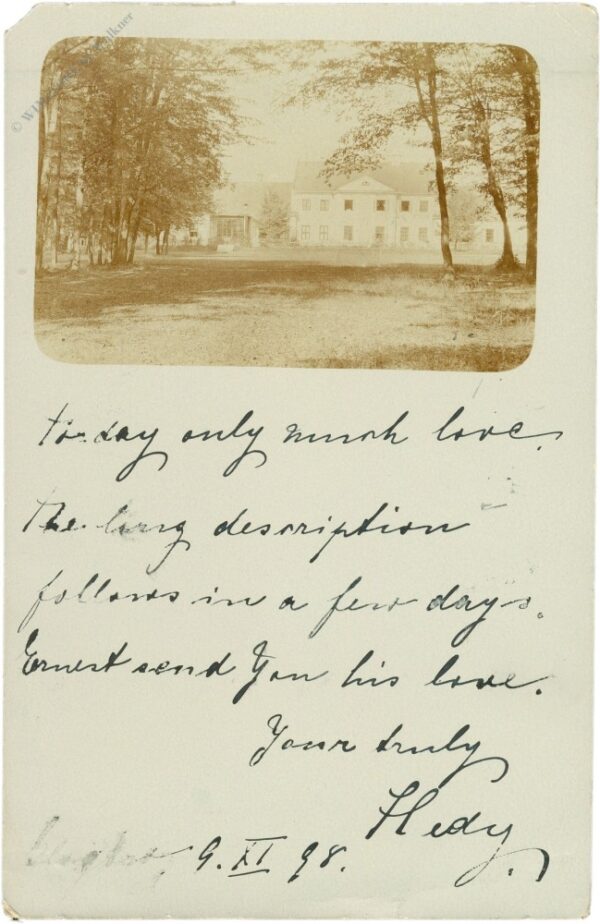 to-day only much love.
The long description
follows in a few days.
Ernest send You his love.
Your truly
Hedy.
9. XI 98.